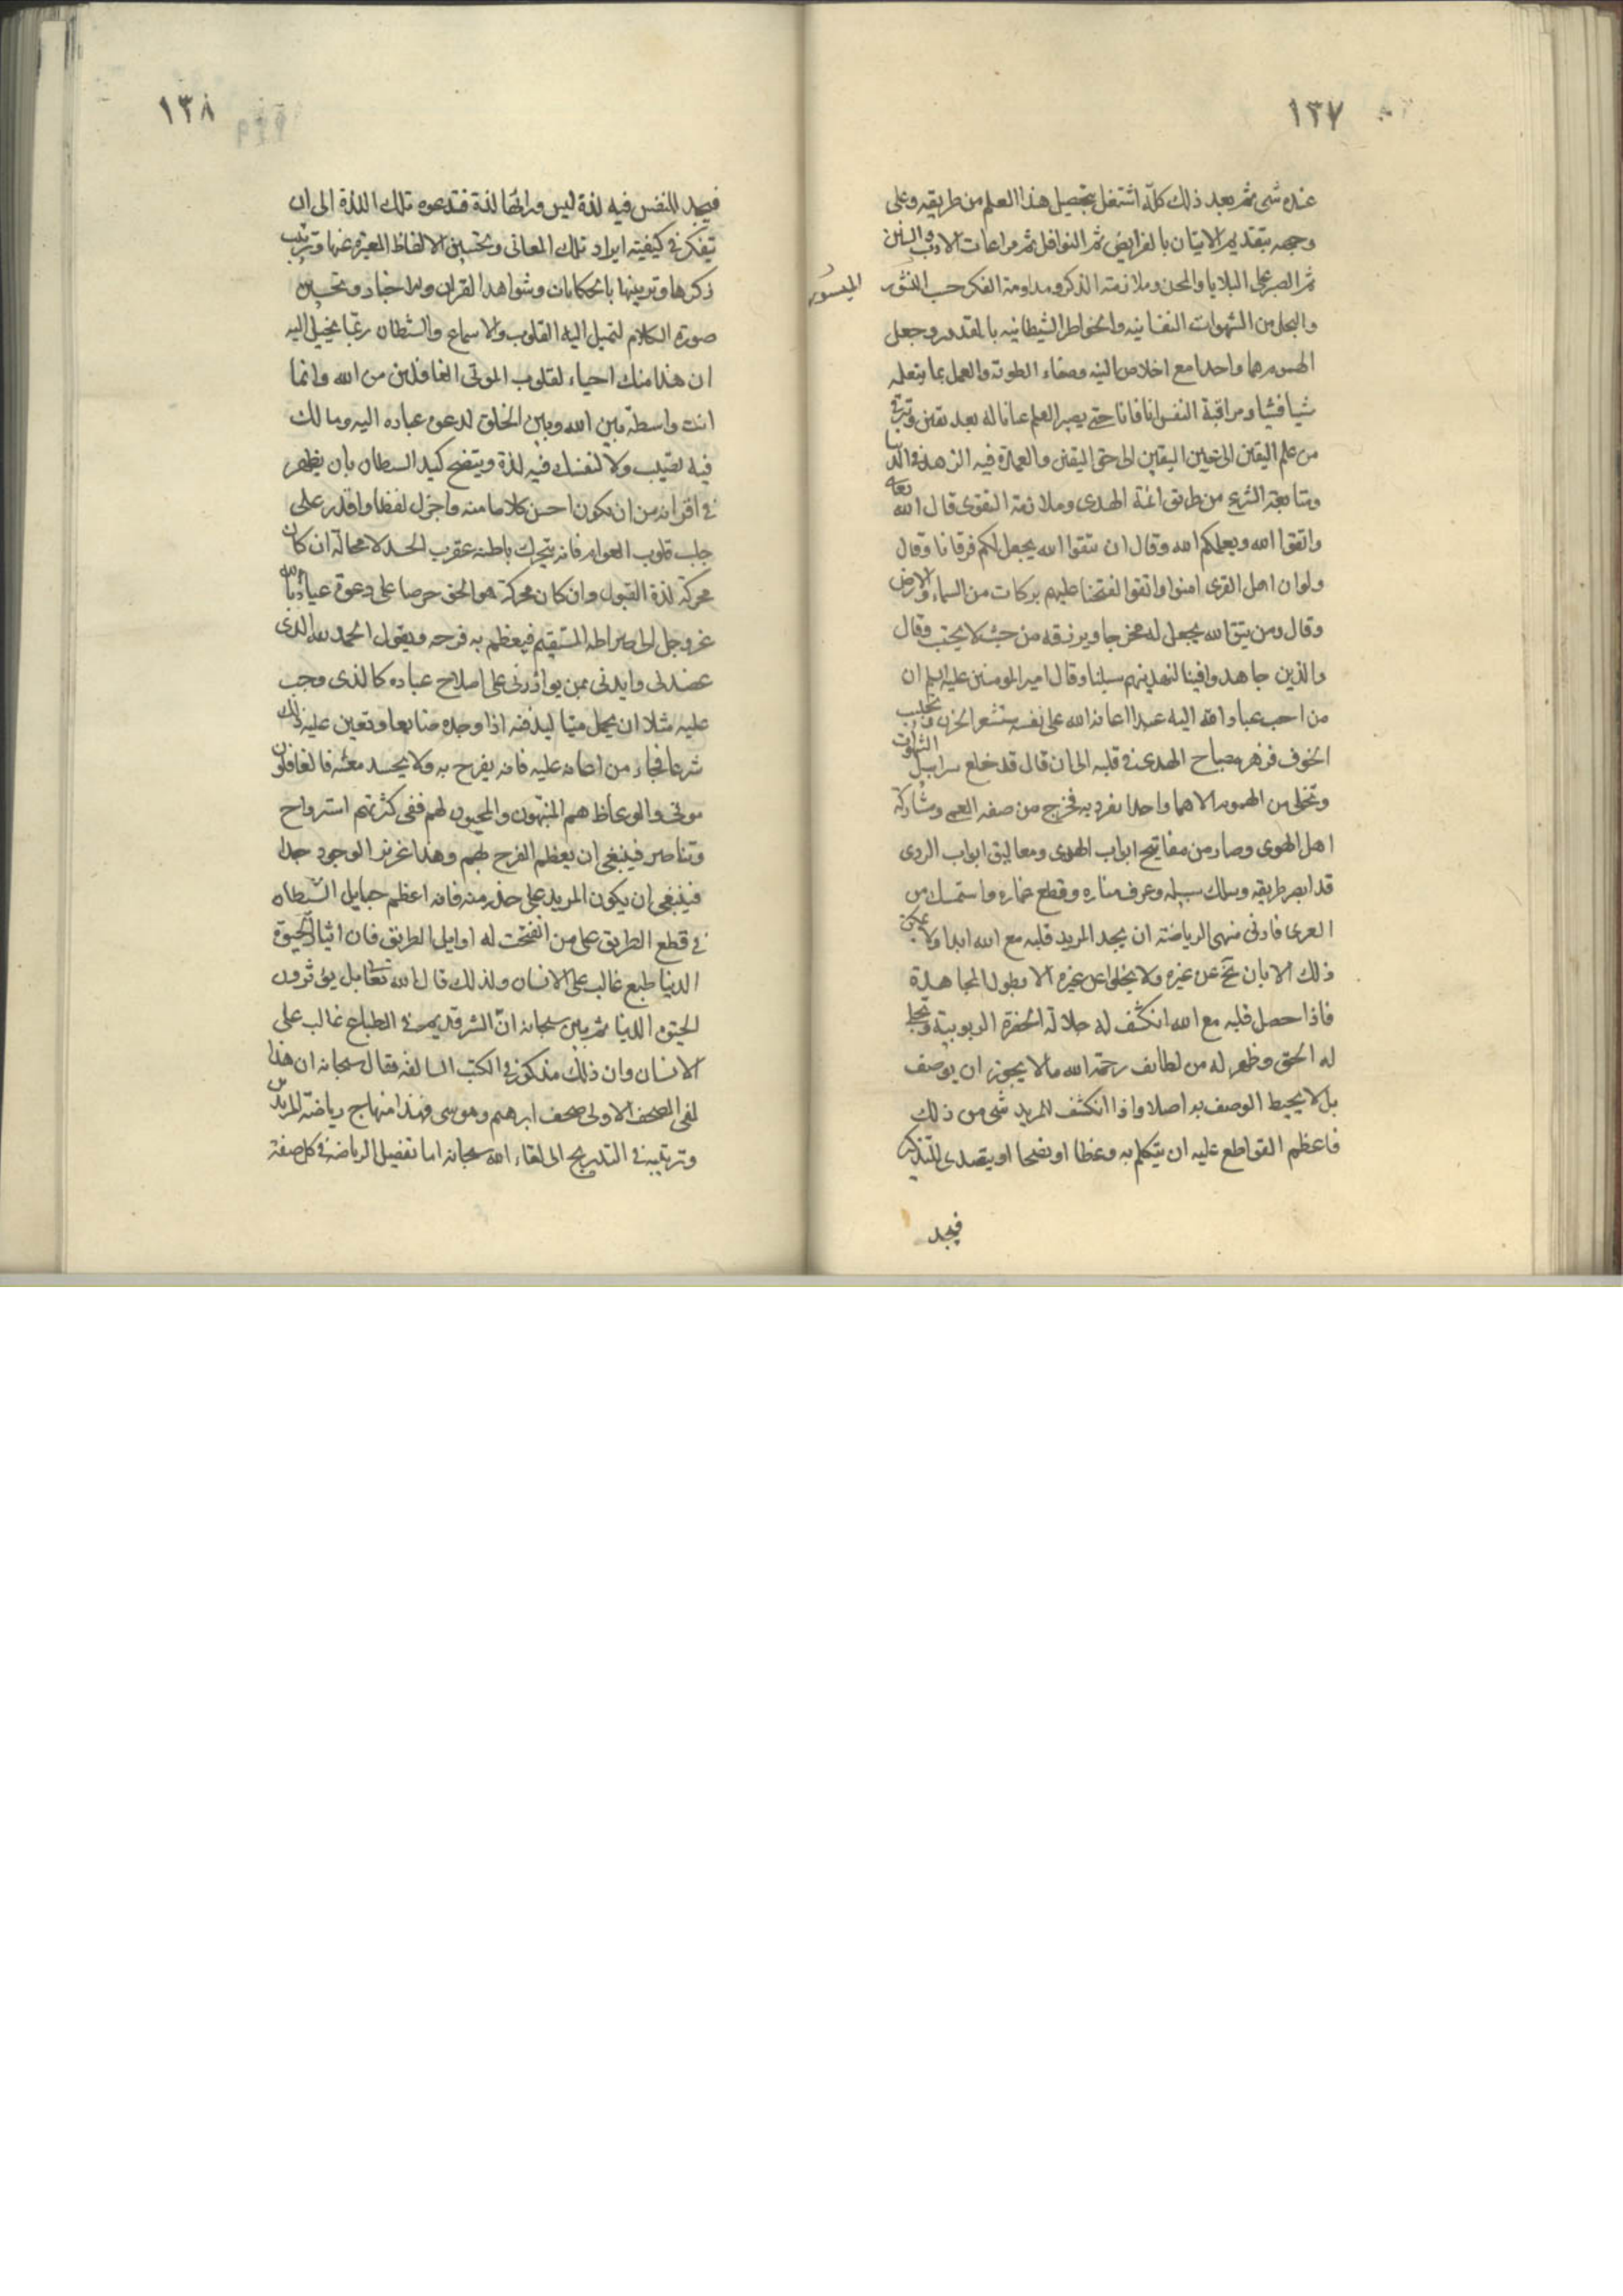 ١٣٧
عنده شئ ثم بعد ذلك كله اشتغل بتحصيل هذا العلم من طريقه وعلى
وجهه بتقديم الاتيان بالفرايض ثم النوافل ثم مراعات الاداب والسنن
ثم الصبر على البلايا والمحن وملازمة الذكر ومداومة الفكر حسب
الميسور
من الشهوات النفسانيه والخواطر الشيطانيه وجعل
الهموم هما واحدا مع اخلاص النية وصفاء الطوية والعمل بما يتعلمه
شيئا فشيئا ومراقبة النفس انا فانا حتى يصير العلم عيانا له بعد يقين وترقى
من علم اليقين الى عين اليقين الى حق اليقين والعمدة فيه الزهد في الدنيا
ومتابعة الشرع من طريق ائمة الهدى وملازمة التقوى قال الله تعالى
واتقوا الله ويعلمكم الله وقال ان تتقوا الله يجعل لكم فرقانا وقال
ولو ان اهل القرى امنوا واتقوا لفتحنا عليهم بركات من السماء والارض
وقال ومن يتق الله يجعل له مخرجا ويرزقه من حيث لا يحتسب وقال
والذين جاهدوا فينا لنهدينهم سبلنا وقال امير المومنين عليه السلم ان
من احب عباد الله اليه عبدا اعانه الله على نفسه فاستشعر الحزن وتجلبب
الخوف فزهر مصباح الهدى في قلبه الى ان قال قد خلع سرابيل الشهوات
وتخلى من الهموم الا هما واحدا انفرد به فخرج من صفة العمى ومشاركة
اهل الهوى وصار من مفاتيح ابواب الهدى ومغاليق ابواب الردى
قد ابصر طريقه وسلك سبيله وعرف مناره وقطع غماره واستمسك من
العرى فادنى منتهى الرياضة ان يجد المريد قلبه مع الله ابدا ولا يمكن
ذلك الا بان تخ عن غيره ولا يخلى عن غيره الا بطول المجاهدة
فاذا حصل قلبه مع الله انكشف له جلالة الحضرة الربوبية وتجلى
له الحق وظهر له من لطايف رحمة الله ما لا يجوز ان يوصف
بل لا يحيط الوصف به اصلا واذا انكشف للمريد شئ من ذلك
فاعظم القواطع عليه ان يتكلم به وعظا او نصحا او يتصدى للتذكير
فيجد
١٣٨
فيجد للنفس فيه لذة ليس ورائها لذة فتدعوه تلك اللذة الى ان
يتفكر في كيفية ايراد تلك المعانى وتحسين الالفاظ المعبرة عنها وترتيب
ذكرها وتزيينها بالحكايات وشواهد القران والاخبار وتحسين
صورة الكلام لتميل اليه القلوب والاسماع والشيطان ربما يخيل اليه
ان هذا منك احياء لقلوب الموتى الغافلين من الله وانما
انت واسطة بين الله وبين الخلق لدعوة عباده اليه ومالك
فيه نصيب ولا لنفسك فيه لذة ويتضح كيد الشيطان بان يظهر
في اقرانه من ان يكون احسن كلاما منه واجزل لفظا واقدر على
جلب قلوب العوام فانه يتحرك باطنه عقرب الحسد لا محالة ان كان
محركه لذة القبول وان كان محركه هو الحق حرصا على دعوة عباد الله
عزوجل الى صراطه المستقيم فيعظم به فرحه ويقول الحمد لله الذى
عضدنى وايدنى بمن يوازرنى على اصلاح عباده كالذى وجب
عليه مثلا ان يحمل ميتا ليدفنه اذا وجده ضايعا وتعين عليه ذلك
شرعا فجاء من اعانه عليه فانه يفرح به ولا يحسد معينه فالغافلون
موتى والوعاظ هم المنبهون والمحيون لهم ففى كثرتهم استرواح
وتناصر فينبغى ان يعظم الفرح بهم وهذا عزيز الوجود جدا
فينبغى ان يكون المريد على حذر منه فانه اعظم حبايل الشيطان
في قطع الطريق على من انفتحت له اوايل الطريق فان ايثار الحيوة
الدنيا طبع غالب على الانسان ولذلك قال الله تعالى بل يؤثرون
الحيوة الدنيا ثم بين سبحانه ان الشر قديم في الطباع غالب على
الانسان وان ذلك مذكور في الكتب السالفه فقال سبحانه ان هذا
لفى الصحف الاولى صحف ابرهيم وموسى فهذا منهاج رياضة المريد
وترتيبه في التدريج الى لقاء الله سبحانه اما تفصيل الرياضة في كل صفة